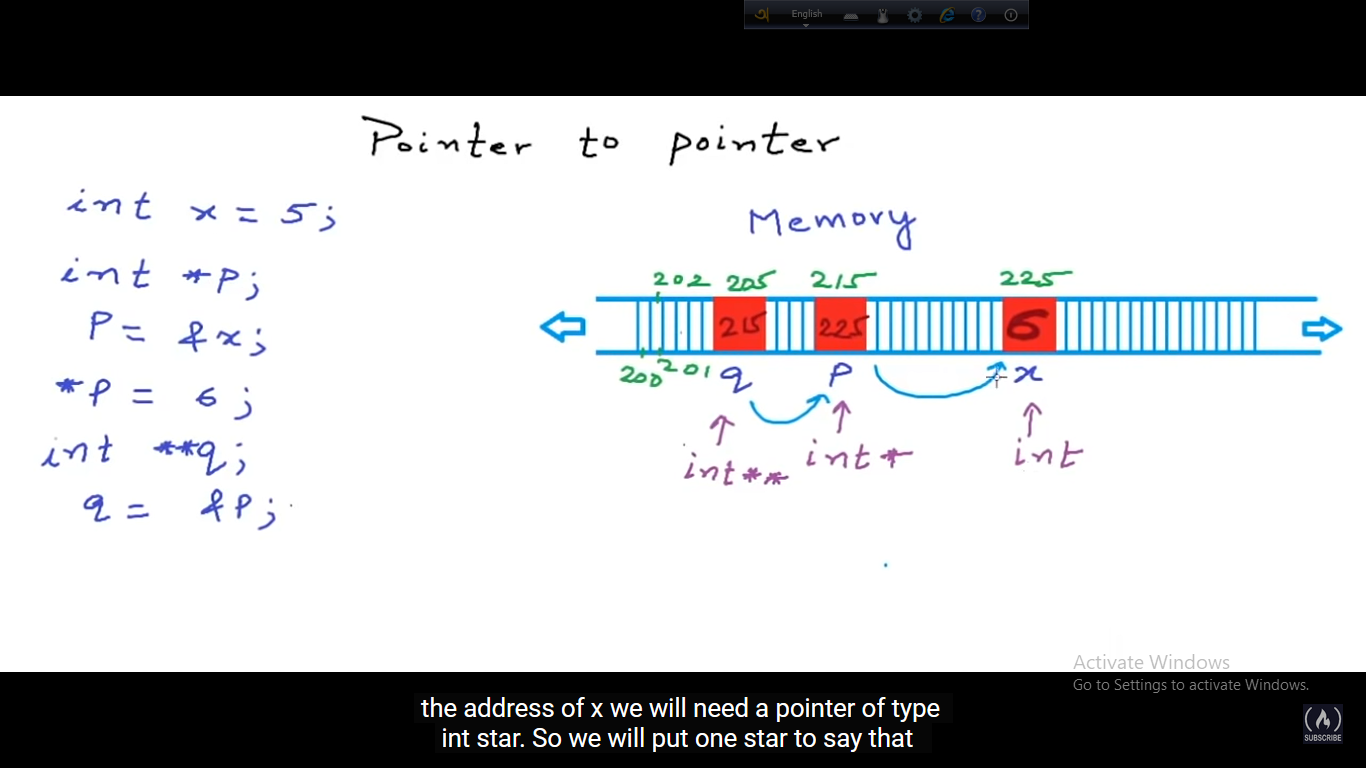 English
Pointer to pointer
int x = 5;
int *p;
P = &x;
*P = 6;
int **q;
q = &P;
Memory
202 205 215 225
215 225 6
200 201 q P x
int** int* int
Activate Windows
Go to Settings to activate Windows.
the address of x we will need a pointer of type
int star. So we will put one star to say that
SUBSCRIBE